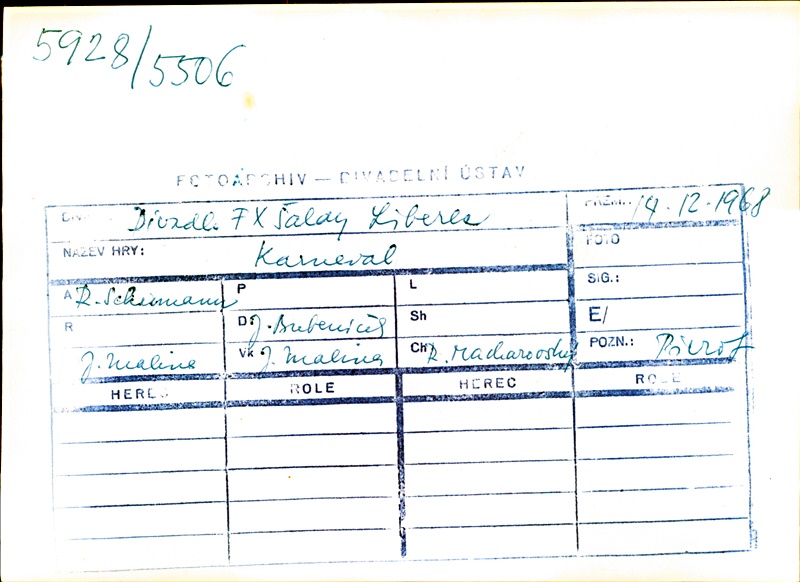 5928/5506
FOTOARCHIV — DIVADELNÍ ÚSTAV
Divadlo F X Šaldy Liberec
PREM.: 14.12.1968
NÁZEV HRY: Karneval
FOTO
A R. Schumann
P
L
SIG.:
R J. Malina
D: J.
Sh
E/
Vk J. Malina
Ch R.
POZN.:
HEREC ROLE HEREC ROLE